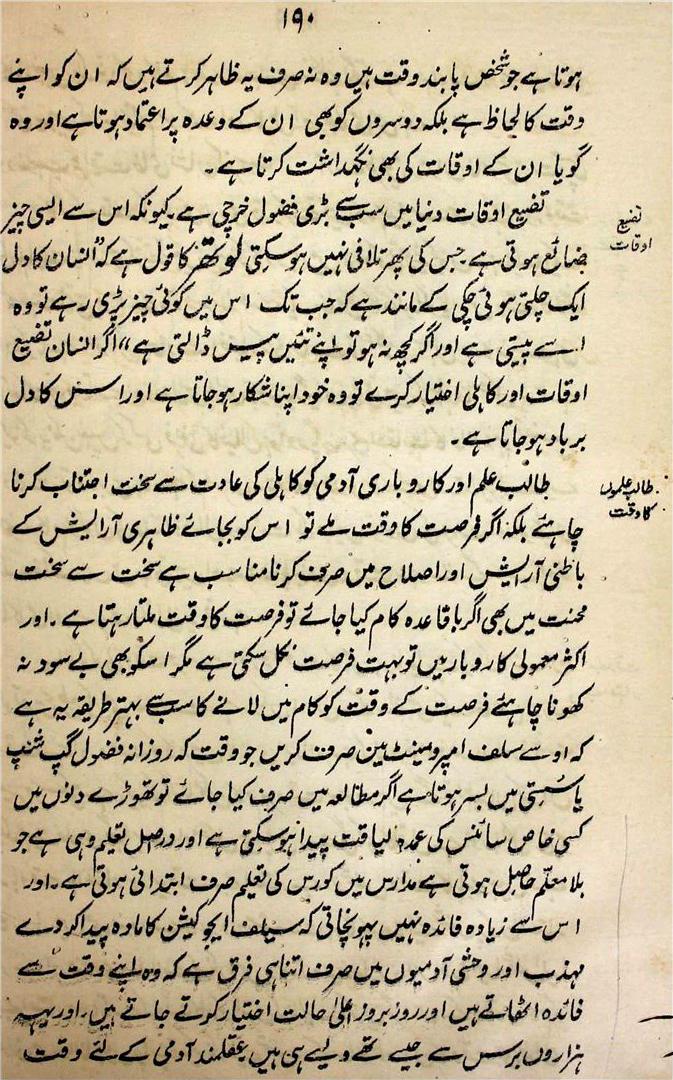 ۱۹۰
ہوتا ہے جو شخص پابند وقت ہیں وہ نہ صرف یہ ظاہر کرتے ہیں کہ ان کو اپنے
وقت کا لحاظ ہے بلکہ دوسروں کو بھی ان کے وعدہ پر اعتماد ہوتا ہے اور وہ
گویا ان کے اوقات کی بھی نگہداشت کرتا ہے۔
تضیع اوقات
تضیع اوقات دنیا میں سب سے بڑی فضول خرچی ہے۔ کیونکہ اس سے ایسی چیز
ضائع ہوتی ہے جس کی پھر تلافی نہیں ہو سکتی لوتھر کا قول ہے کہ "انسان کا دل
ایک چلتی ہوئی چکی کے مانند ہے کہ جب تک اس میں کوئی چیز پڑی رہے تو وہ
اسے پیستی ہے اور اگر کچھ نہ ہو تو اپنے تئیں پیس ڈالتی ہے" اگر انسان تضیع
اوقات اور کاہلی اختیار کرے تو وہ خود اپنا شکار ہو جاتا ہے اور اس کا دل
برباد ہو جاتا ہے۔
طالب علموں کا وقت
طالب علم اور کاروباری آدمی کو کاہلی کی عادت سے سخت اجتناب کرنا
چاہئے بلکہ اگر فرصت کا وقت ملے تو اس کو بجائے ظاہری آرایش کے
باطنی آرایش اور اصلاح میں صرف کرنا مناسب ہے سخت سے سخت
محنت میں بھی اگر باقاعدہ کام کیا جائے تو فرصت کا وقت ملتا رہتا ہے۔ اور
اکثر معمولی کاروبار میں تو بہت فرصت نکل سکتی ہے مگر اسکو بھی بے سود نہ
کھونا چاہئے فرصت کے وقت کو کام میں لانے کا سب سے بہتر طریقہ یہ ہے
کہ اوسے سلف امپرومینٹ مین صرف کریں جو وقت کہ روزانہ فضول گپ شپ
یا سستی میں بسر ہوتا ہے اگر مطالعہ میں صرف کیا جائے تو تھوڑے دنوں میں
کسی خاص سائنس کی عمدہ لیاقت پیدا ہو سکتی ہے اور در اصل تعلیم وہی ہے جو
بلا معلّم حاصل ہوتی ہے مدارس میں کورس کی تعلیم صرف ابتدائی ہوتی ہے۔ اور
اس سے زیادہ فائدہ نہیں پہونچاتی کہ سیلف ایجوکیشن کا مادہ پیدا کر دے
مہذب اور وحشی آدمیوں میں صرف اتنا ہی فرق ہے کہ وہ اپنے وقت سے
فائدہ اٹھاتے ہیں اور روز بروز اعلیٰ حالت اختیار کرتے جاتے ہیں۔ اور یہہ
ہزاروں برس سے جیسے تھے ویسے ہی ہیں۔ عقلمند آدمی کے لئے وقت